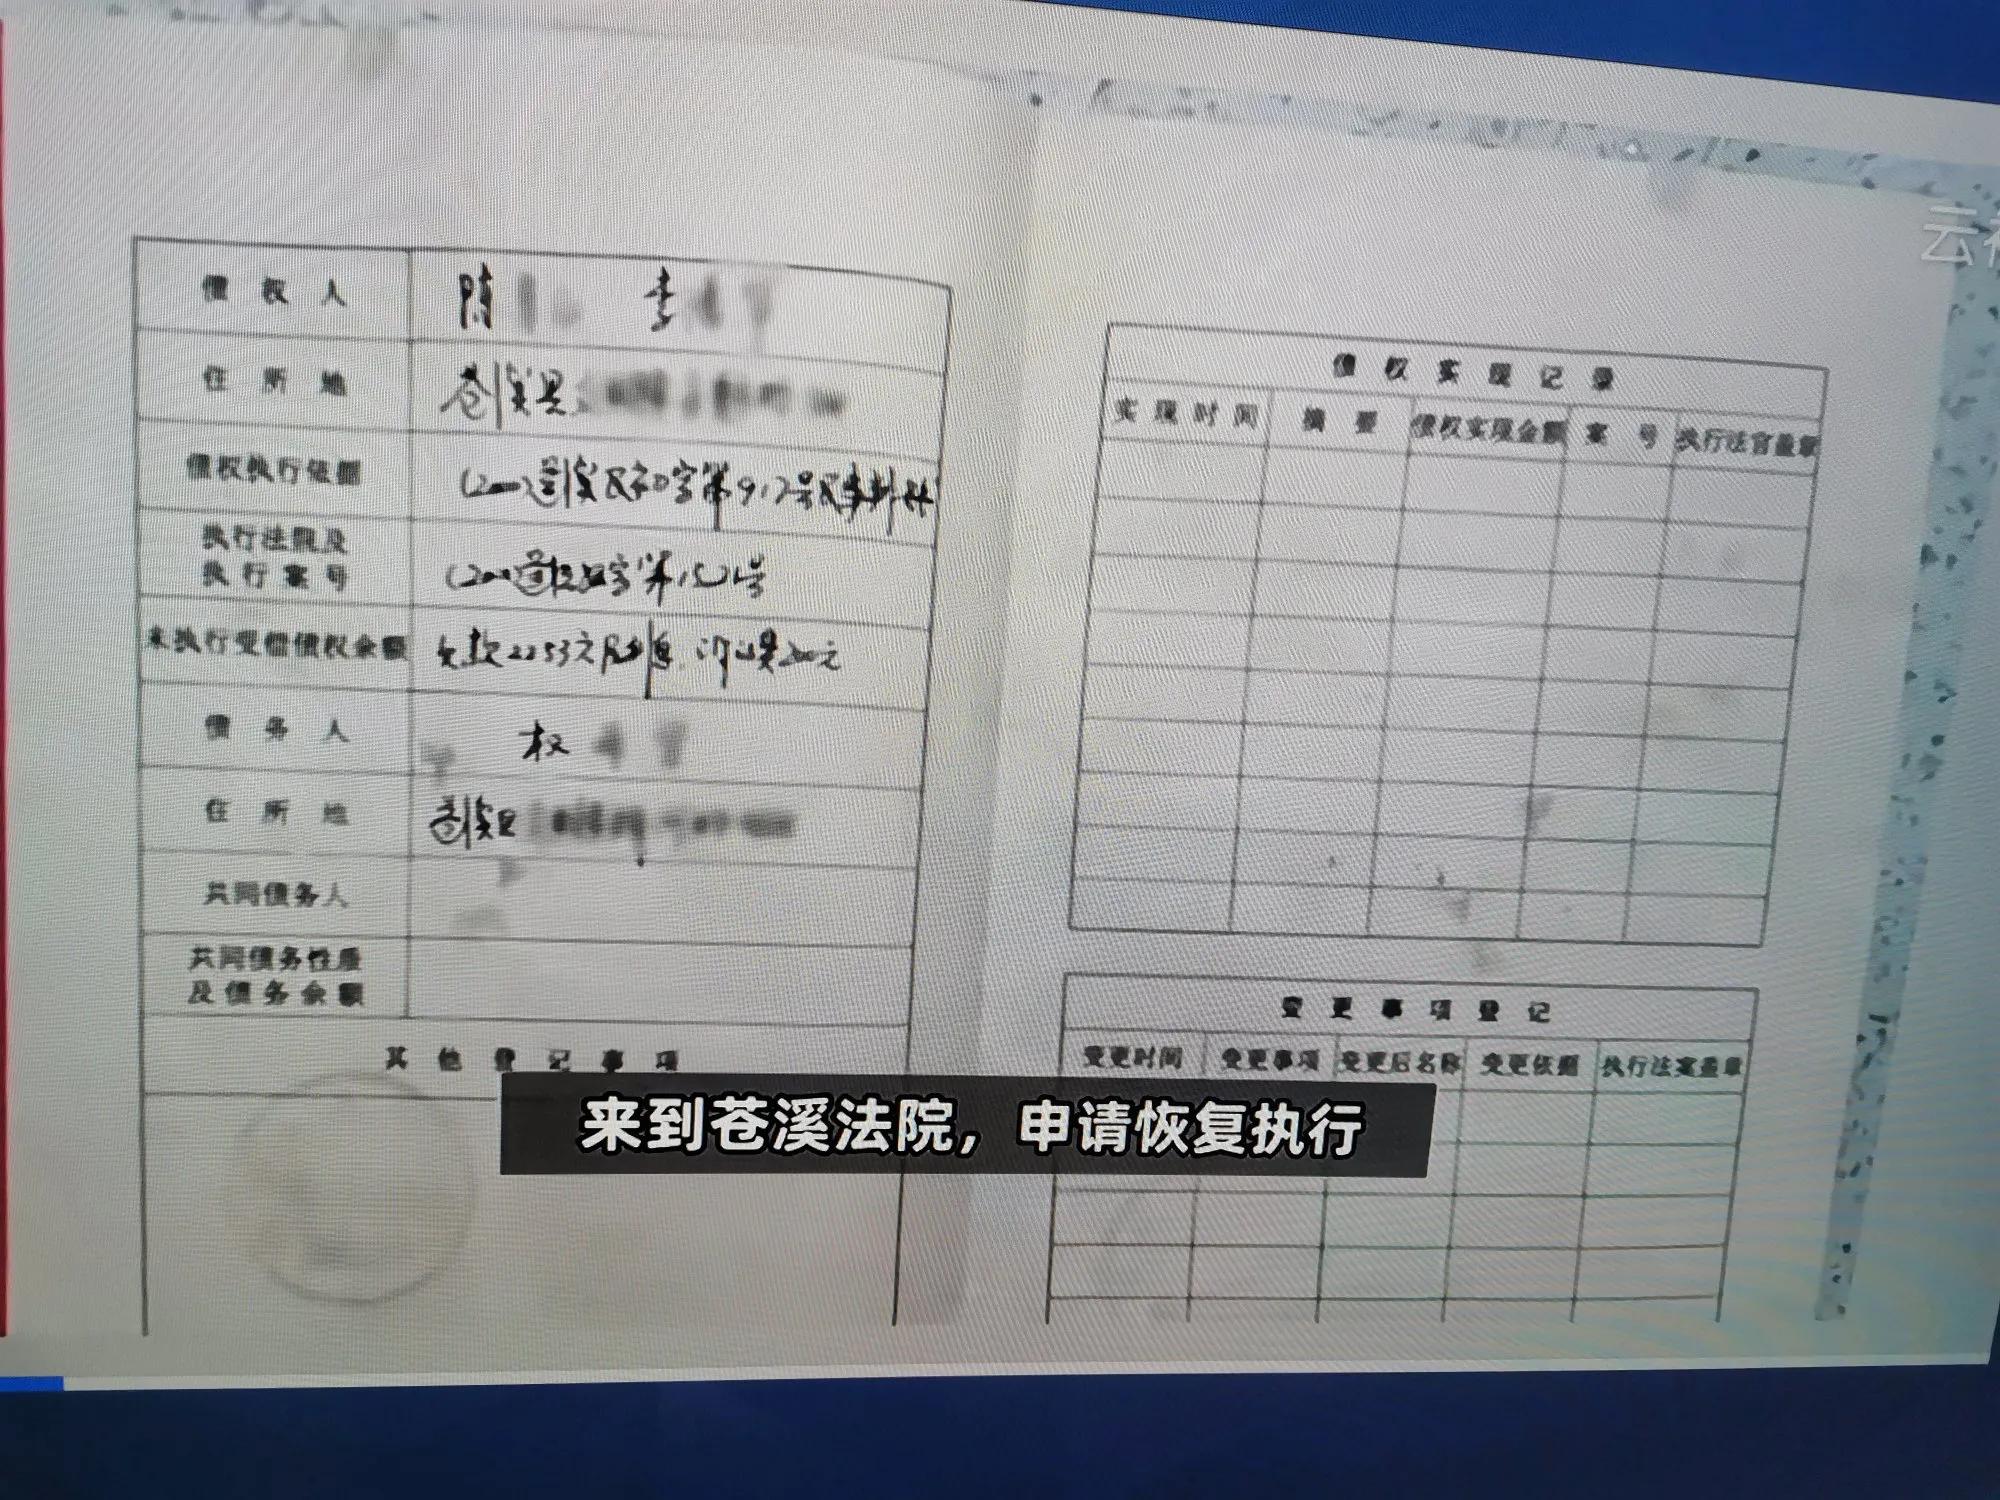 云
债权人 陈 李
住所地 苍溪县
债权执行依据
执行法院及
执行案号
未执行受偿债权余额 欠款2253元及利息
债务人 权
住所地 苍溪县
共同债务人
共同债务性质
及债务余额
其他登记事项
债权实现记录
实现时间 摘要 债权实现金额 案号 执行法官盖章
变更事项登记
变更时间 变更事项 变更后名称 变更依据 执行法案盖章
来到苍溪法院，申请恢复执行